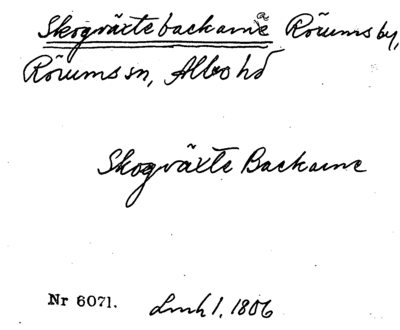 Skogväxtebackarne Rörums by,
Rörums sn, Albo hd
Skogväxte Backarne
Nr 6071. Lmh 1. 1806